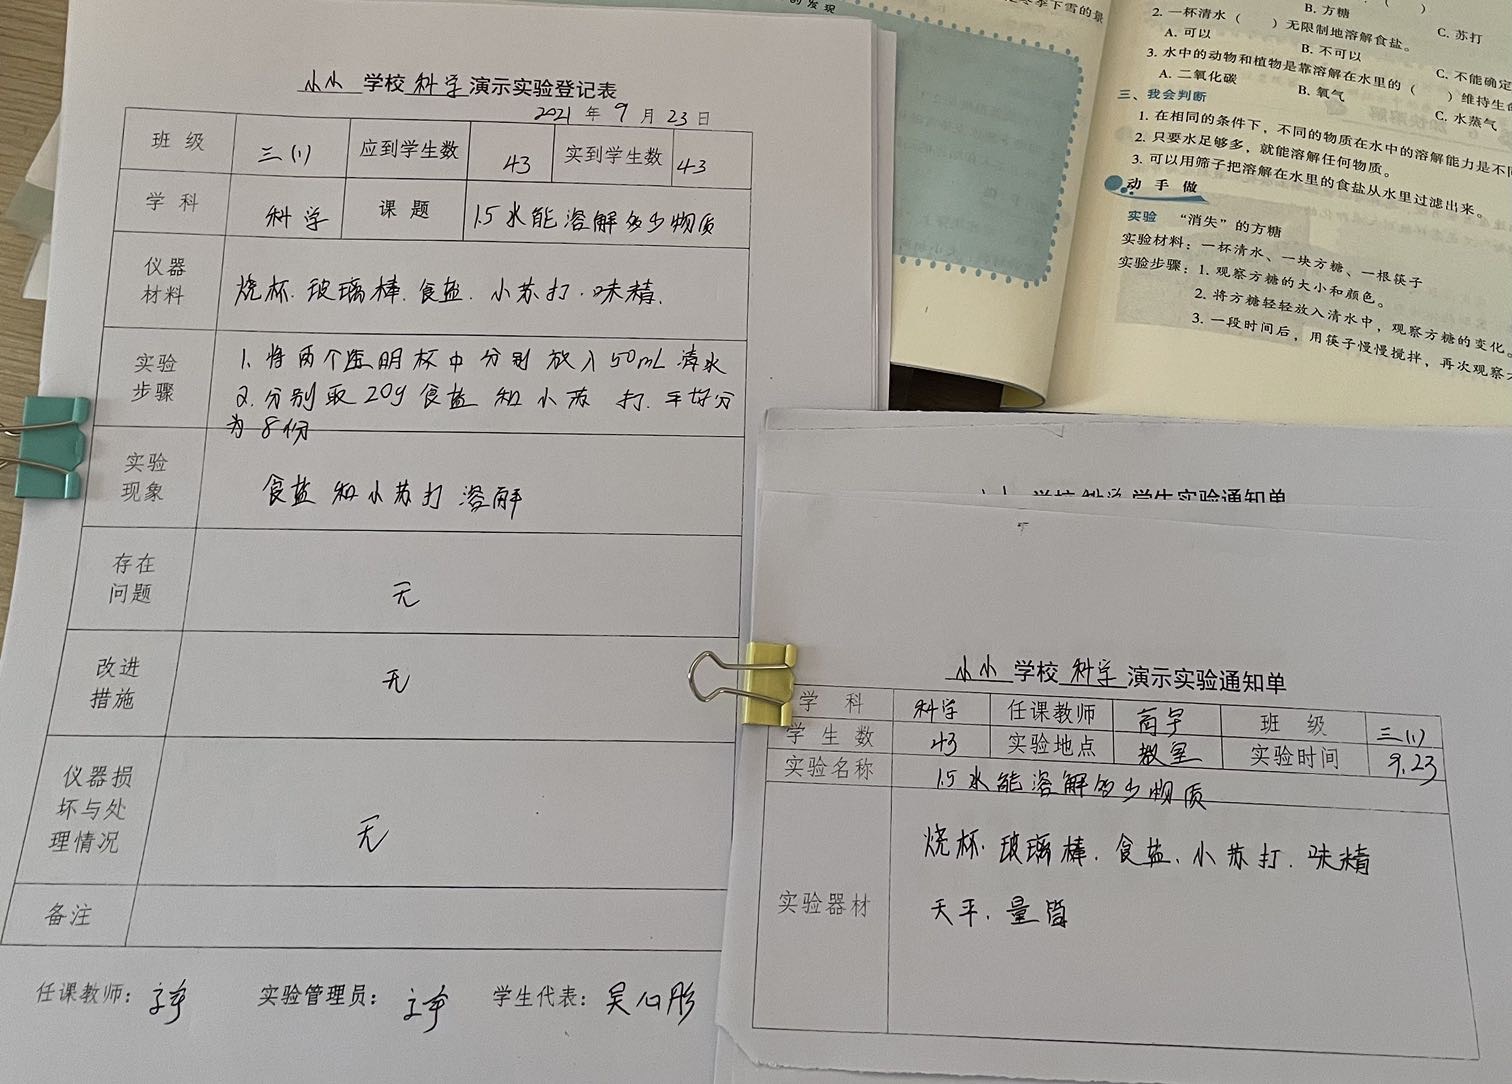 小小 学校 科学 演示实验登记表
2021 年 9 月 23 日
班 级 三(1) 应到学生数 43 实到学生数 43
学 科 科学 课 题 1.5 水能溶解多少物质
仪器
材料
烧杯.玻璃棒.食盐.小苏打.味精.
实验
步骤
1. 将两个透明杯中分别放入50mL清水
2. 分别取20g食盐和小苏打.平均分
为8份
实验
现象
食盐和小苏打溶解
存在
问题
无
改进
措施
无
仪器损
坏与处
理情况
无
备注
任课教师:
实验管理员:
学生代表: 吴心彤
的发现
冬季下雪的景
B. 方糖
C. 苏打
2. 一杯清水( )无限制地溶解食盐。
A. 可以
B. 不可以
C. 不能确定
3. 水中的动物和植物是靠溶解在水里的( )维持生命
A. 二氧化碳
B. 氧气
C. 水蒸气
三、我会判断
1. 在相同的条件下，不同的物质在水中的溶解能力是不同
2. 只要水足够多，就能溶解任何物质。
3. 可以用筛子把溶解在水里的食盐从水里过滤出来。
动 手 做
实验 “消失”的方糖
实验材料：一杯清水、一块方糖、一根筷子
实验步骤：1. 观察方糖的大小和颜色。
2. 将方糖轻轻放入清水中，观察方糖的变化。
3. 一段时间后，用筷子慢慢搅拌，再次观察方
学校 科学 学生实验通知单
小小 学校 科学 演示实验通知单
学 科 科学 任课教师 班 级 三(1)
学 生 数 43 实验地点 教室 实验时间 9.23
实验名称 1.5 水能溶解多少物质
实验器材
烧杯.玻璃棒.食盐.小苏打.味精
天平.量筒